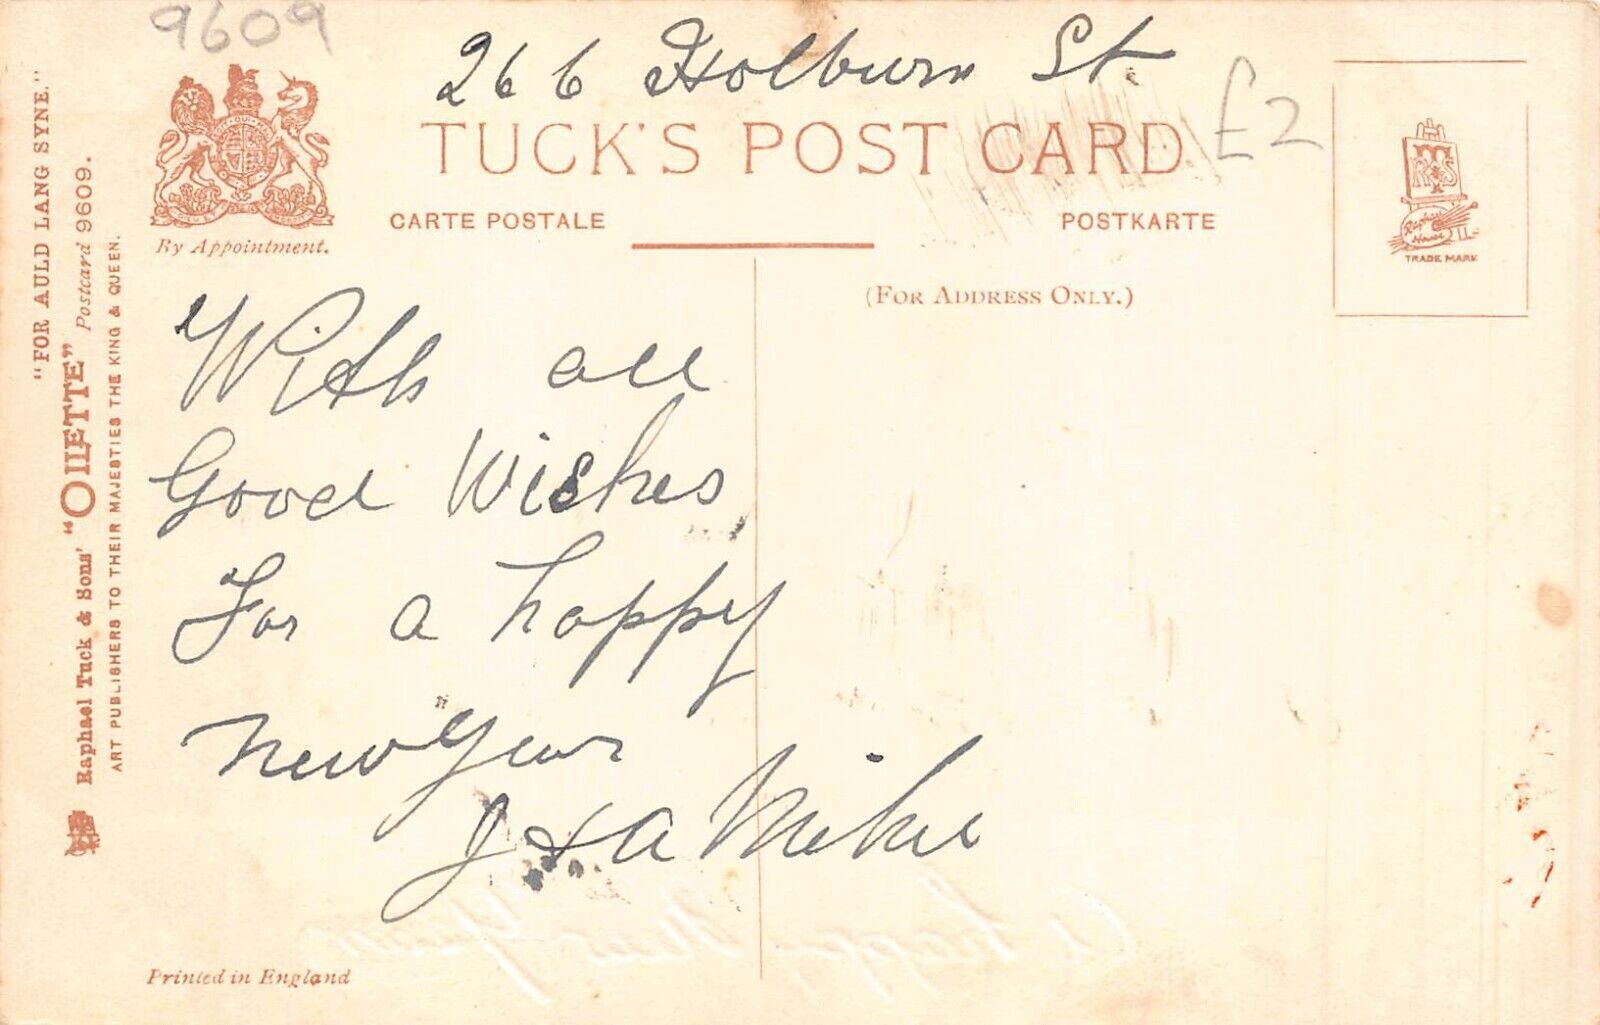 9609
266 Holburn St.
£2
TUCK'S POST CARD
CARTE POSTALE
POSTKARTE
By Appointment.
(FOR ADDRESS ONLY.)
Raphael House
TRADE MARK
"FOR AULD LANG SYNE."
Raphael Tuck & Sons' "OILETTE" Postcard 9609.
ART PUBLISHERS TO THEIR MAJESTIES THE KING & QUEEN.
With all
Good Wishes
For a happy
New Year
J & A Mikie
A happy New Year
Printed in England